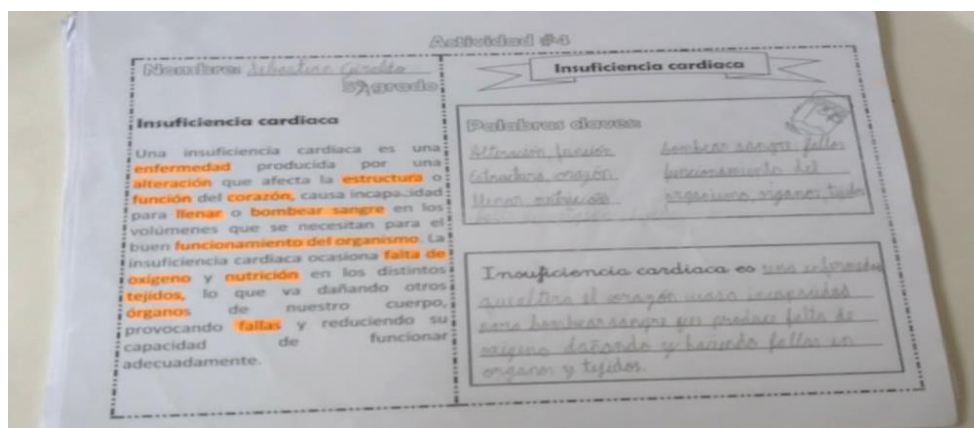 Actividad #4
Nombre: Sebastian Giraldo
5° grado
Insuficiencia cardiaca
Una insuficiencia cardiaca es una
enfermedad producida por una
alteración que afecta la estructura o
función del corazón, causa incapacidad
para llenar o bombear sangre en los
volúmenes que se necesitan para el
buen funcionamiento del organismo. La
insuficiencia cardiaca ocasiona falta de
oxigeno y nutrición en los distintos
tejidos, lo que va dañando otros
órganos de nuestro cuerpo,
provocando fallas y reduciendo su
capacidad de funcionar
adecuadamente.
Insuficiencia cardiaca
Palabras claves:
Alteración, función bombear sangre, fallas
Estructura, corazón funcionamiento del
llenar, nutrición organismo, organos, tejidos
Insuficiencia cardiaca es una enfermedad
que altera el corazón causa incapacidad
para bombear sangre produce falta de
oxigeno dañando y haciendo fallas en
organos y tejidos.